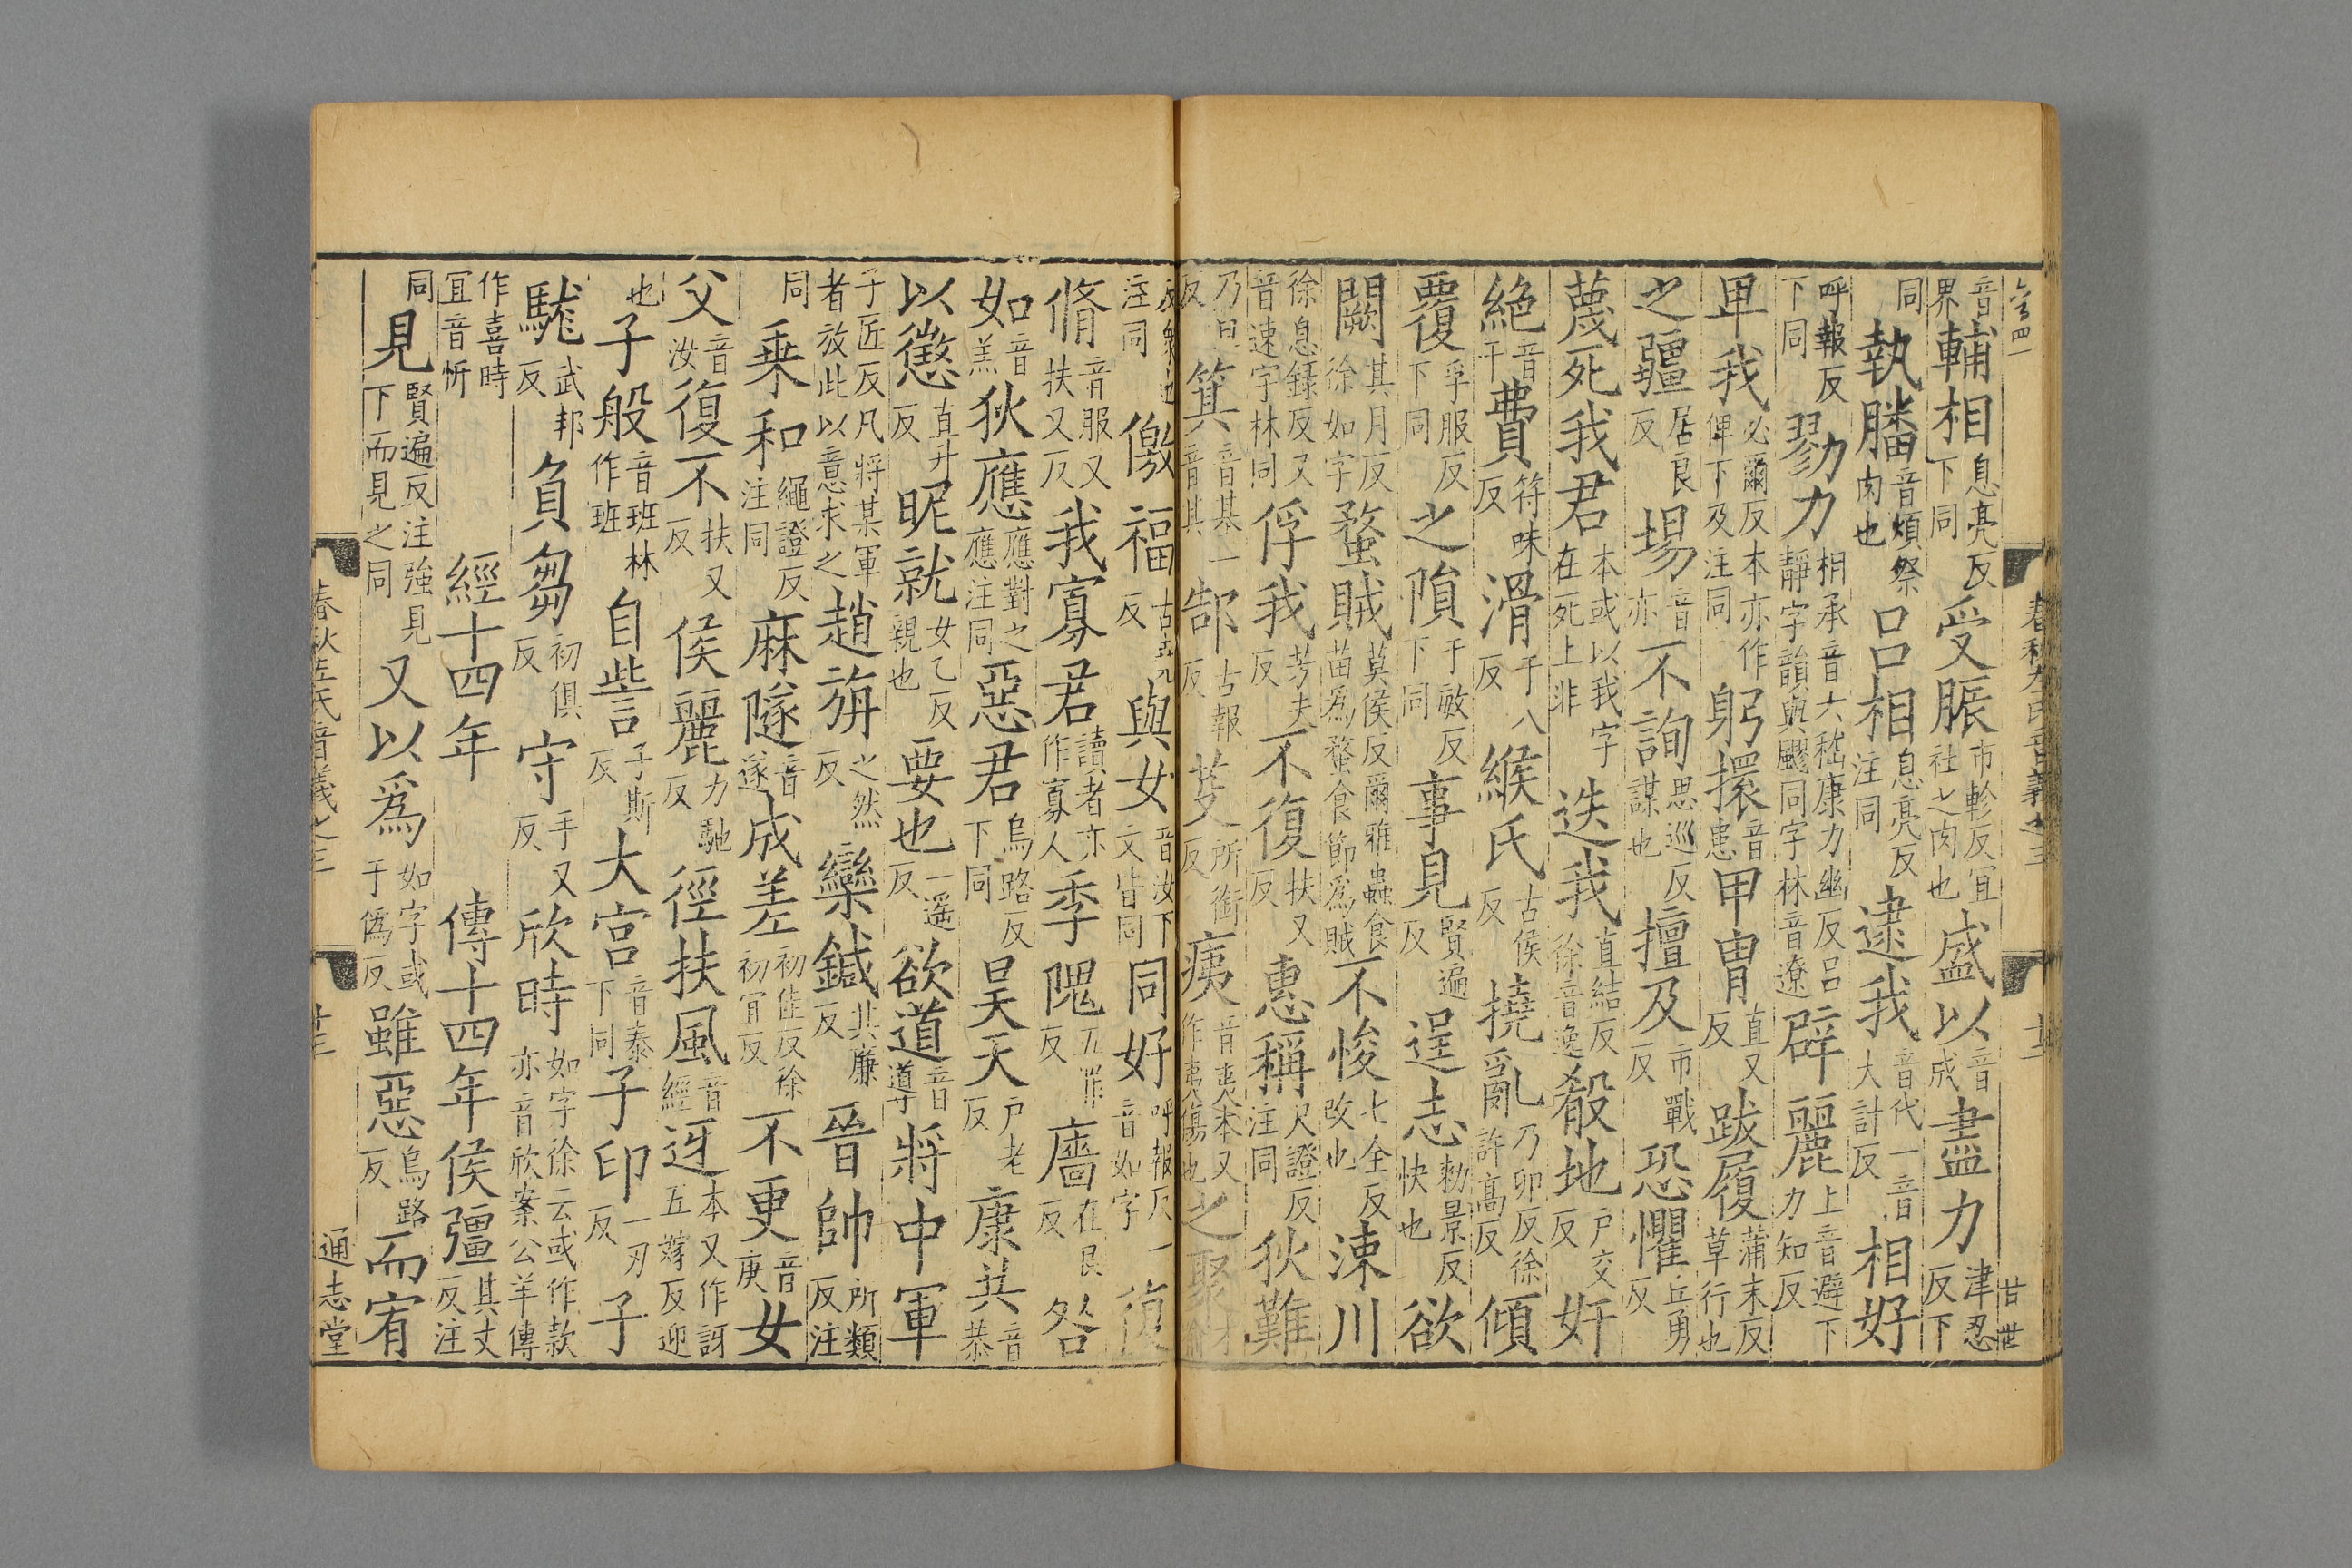 春秋左氏音義之三
音界輔相息亮反下同受脤市軫反宜社之肉也盛以音成盡力津忍反下
同執膰音煩祭肉也呂相息亮反注同逮我音代一音大計反相好
呼報反下同勠力相承音六嵇康力幽反呂靜字韻與飂同字林音遼辟麗上音避下力知反
𢌿我必爾反本亦作俾下及注同躬擐音患甲冑直又反跋履蒲末反草行也
之疆居良反場音亦不詢思巡反謀也擅及市戰反恐懼丘勇反
蔑死我君本或以我字在死上非迭我直結反徐音逸殽地戶交反奸
絕音干費符味反滑于八反緱氏古侯反撓亂乃卯反徐許高反傾
覆孚服反下同之隕于敏反下同事見賢遍反逞志勑景反快也欲
闕其月反徐如字蝥賊莫侯反爾雅蟲食苗為蝥食節為賊不悛七全反改也涑川
徐息錄反又音速字林同俘我芳夫反不復扶又反惠稱尺證反注同狄難
乃旦反箕音基一音其郜古報反芟所銜反痍音夷本又作夷傷也之聚才
注同儌福古堯反與女音汝下文皆同同好呼報反一音如字復
脩音服又扶又反我寡君讀者亦作寡人季隗五罪反廧在良反咎
如音羔狄應應對之應注同惡君烏路反下同昊天戶老反康共音恭
以懲直升反昵就女乙反親也要也一遙反欲道音導將中軍
子匠反凡將某軍者放此以意求之趙旃之然反欒鍼其廉反晉帥所類反注
同乘和繩證反注同麻隧音遂成差初佳反徐初宜反不更音庚女
父音汝復不扶又反侯麗力馳反徑扶風音經迓本又作訝五嫁反迎
也子般音班林作班自訾子斯反大宮音泰下同子印一刃反子
駹武邦反負芻初俱反守手又反欣時如字徐云或作款亦音欣案公羊傳
作喜時宜音忻經十四年傳十四年侯彊其丈反注
同見賢遍反注強見下而見之同又以為如字或于偽反雖惡烏路反而宥
春秋左氏音義之三
通志堂